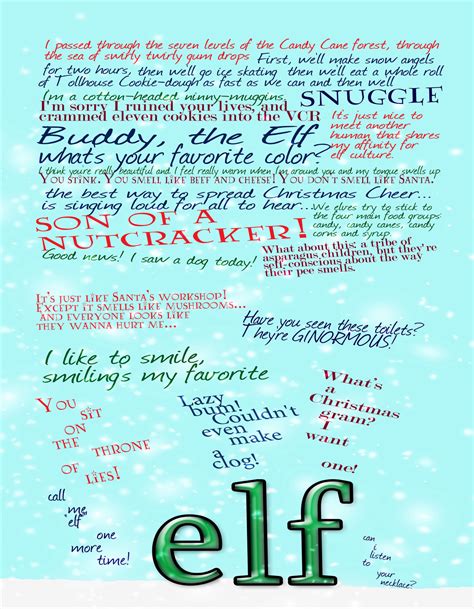 I passed through the seven levels of the Candy Cane forest, through
the sea of swirly twirly gum drops
First, we'll make snow angels
for two hours, then we'll go ice skating then we'll eat a whole roll
of Tollhouse Cookie-dough as fast as we can and then we'll
SNUGGLE
I'm a cotton-headed ninny-muggins
I'm sorry I ruined your lives, and
crammed eleven cookies into the VCR
It's just nice to
meet another
human that shares
my affinity for
elf culture.
Buddy, the Elf
whats your favorite color?
I think youre really beautiful and I feel really warm when I'm around you and my tongue swells up
You stink. You smell like beef and cheese! You don't smell like Santa.
the best way to spread Christmas Cheer...
is singing loud for all to hear...
We elves try to stick to
the four main food groups:
candy, candy canes, candy
corns and syrup.
SON OF A
NUTCRACKER!
Good news! I saw a dog today!
What about this: a tribe of
asparagus children, but they're
self-conscious about the way
their pee smells.
It's just like Santa's workshop!
Except it smells like mushrooms...
and everyone looks like
they wanna hurt me...
Have you seen these toilets?
They're GINORMOUS!
I like to smile,
smilings my favorite
You
sit
on
the throne
of lies!
Lazy
bum!
Couldn't
even
make
a
clog!
What's
a
Christmas
gram?
I
want
one!
call
me
elf
one
more
time!
elf
can
i
listen
to
your
necklace?